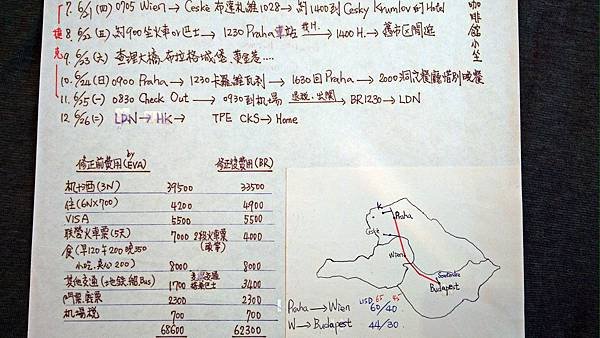 7. 6/21 (四) 0705 Wien → Ceske 布達札維 1028 → 約1400到 Cesky Krumlov 的 Hotel
8. 6/22 (五) 約900坐火車 or 巴士 → 1230 Praha 車站 找H. → 1400 H. → 舊市区閒逛
9. 6/23 (六) 查理大橋、布拉格城堡、
10. 6/24 (日) 0900 Praha → 1230 卡羅維瓦利 → 1630回 Praha → 2000洞穴餐廳惜別晚餐
11. 6/25 (一) 0830 Check Out → 0930到机場 退税、出関 → BR1230 → LDN
12. 6/26 (二) LDN → HK → TPE CKS → Home
捷克
咖啡館小坐
修正前費用 by (EVA) 修正後費用 (BR)
机+酒 (3N) 39500 33500
住 (6N×700) 4200 4900
VISA 5500 5500
聯營火車票 (5天) 7000 2段火車票 4000
食 (早120 午200 晚350
小吃、点心 200) 8000 8000
其他交通 (地鉄、船、Bus) 1700 3400
門票、套票 2300 2300
机場税 700 700
68600 62300
K
Praha
Ceske
Wien
Budapest
USD 65 45
Praha → Wien 60/40
W → Budapest 44/30